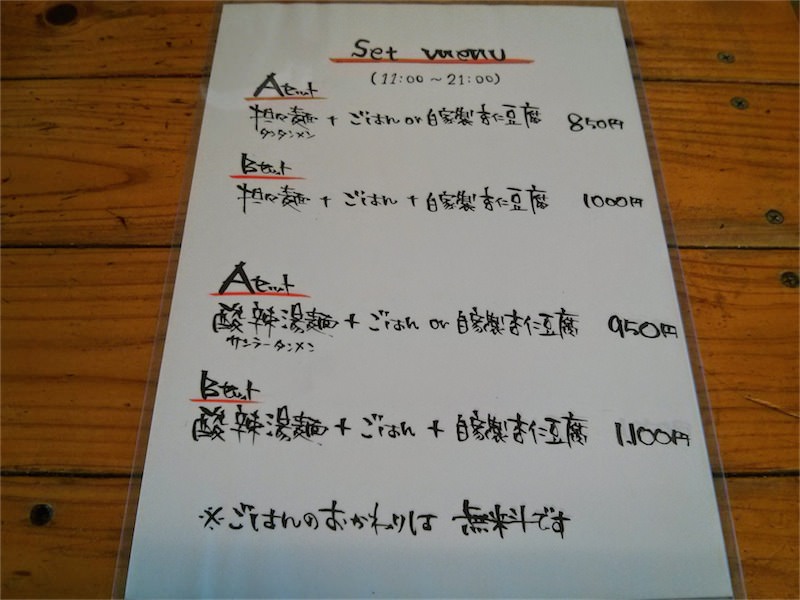 Set menu
(11:00～21:00)
Aセット
担々麺 + ごはん or 自家製杏仁豆腐 850円
タンタンメン
Bセット
担々麺 + ごはん + 自家製杏仁豆腐 1000円
Aセット
酸辣湯麺 + ごはん or 自家製杏仁豆腐 950円
サンラータンメン
Bセット
酸辣湯麺 + ごはん + 自家製杏仁豆腐 1,100円
※ごはんのおかわりは 無料です